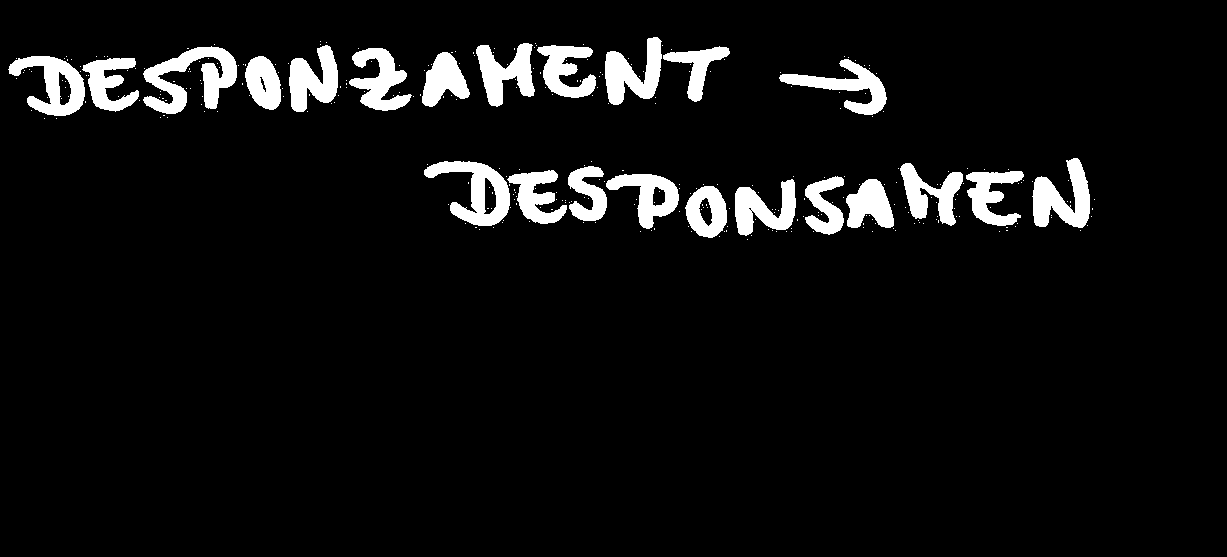 DESPONZAMENT →
DESPONSAMEN